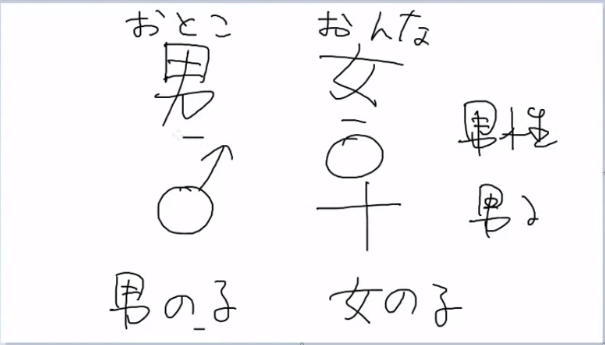 おとこ おんな
男 女
♂ ♀
男性
男
男の子 女の子